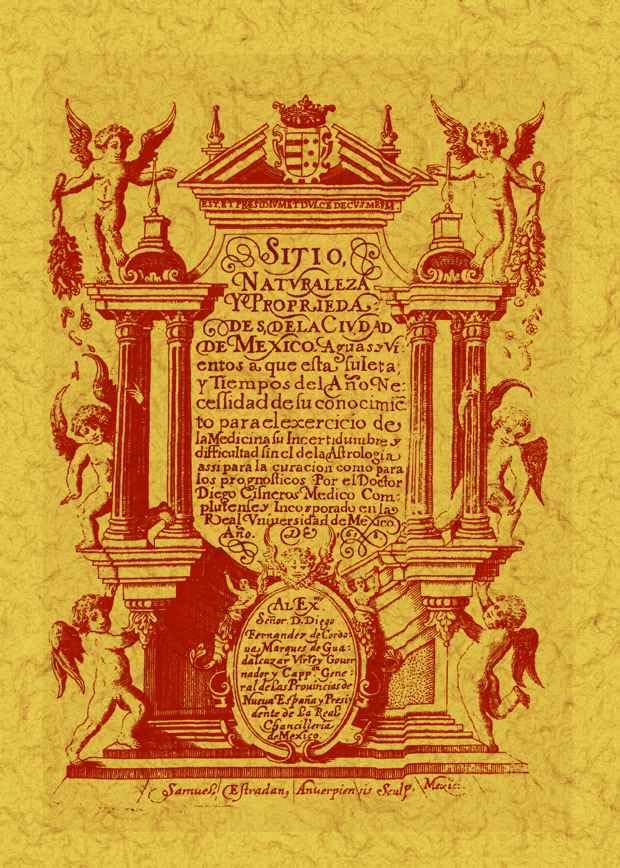 EST, ET PRESIDIVM ET DVLCE DECVS MEVM
SITIO,
NATVRALEZA
Y PROPRIEDA,
DES, DE LA CIVDAD
DE MEXICO. Aguas y Vi-
entos a que esta suieta;
y Tiempos del Año. Ne:
cessidad de su conocimiē
to para el exercicio de
la Medicina su Incertidumbre y
difficultad sin el de la Astrologia
assi para la curacion como para
los prognosticos. Por el Doctor
Diego Cisneros Medico Com:
plutense, y Incorporado en la
Real Vniuersidad de Mexico,
Año. DE 1618
AL EX.mo
Señor. D. Diego
Fernandez de Cordo:
ua, Marques de Gua:
dalcazar Virrey Gouer
nador y Capp.n Gene:
ral de Las Prouincias de
Nueua España y Presi
dente de La Real
Chancilleria
de Mexico.
Samuel, Estradan, Antuerpiensis Sculp. Mexic.